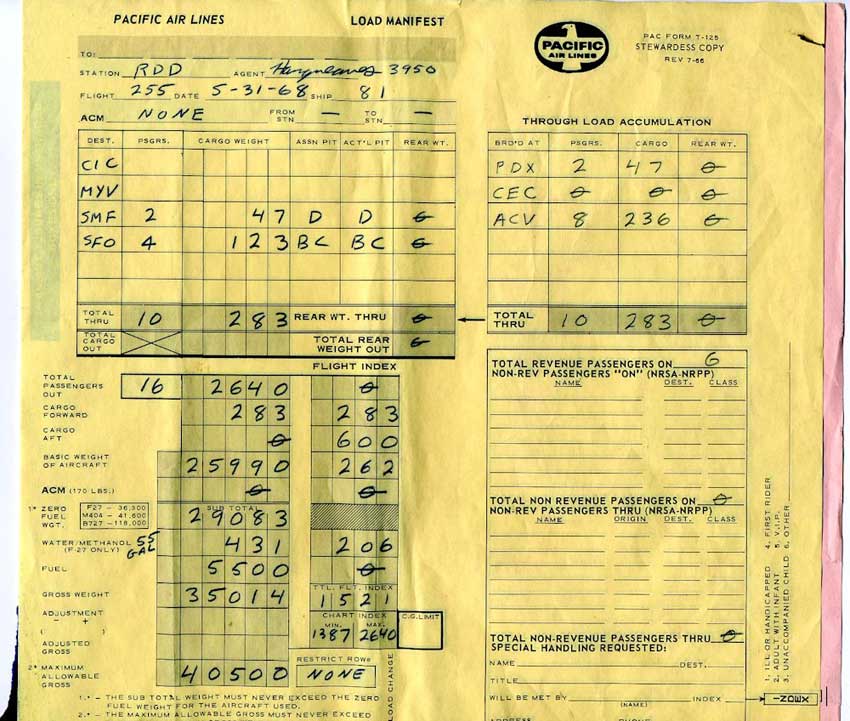 PACIFIC AIR LINES LOAD MANIFEST
PACIFIC AIR LINES
PAC FORM T-125
STEWARDESS COPY
REV 7-66
TO:
STATION RDD AGENT 3950
FLIGHT 255 DATE 5-31-68 SHIP 81
ACM NONE FROM STN — TO STN —
THROUGH LOAD ACCUMULATION
DEST. PSGRS. CARGO WEIGHT ASSN PIT ACT'L PIT REAR WT.
BRD'D AT PSGRS. CARGO REAR WT.
CIC
PDX 2 47 0
MYV
CEC 0 0 0
SMF 2 47 D D 0
ACV 8 236 0
SFO 4 123 BC BC 0
TOTAL THRU 10 283 REAR WT. THRU 0
TOTAL THRU 10 283 0
TOTAL CARGO OUT TOTAL REAR WEIGHT OUT 0
FLIGHT INDEX
TOTAL PASSENGERS OUT 16 2640 0
CARGO FORWARD 283 283
CARGO AFT 0 600
BASIC WEIGHT OF AIRCRAFT 25990 262
ACM (170 LBS.) 0 0
1* ZERO FUEL WGT. F27 – 36,300 M404 – 41,600 B727 – 118,000 SUB TOTAL 29083
WATER/METHANOL (F-27 ONLY) 55 GAL 431 206
FUEL 5500 0
TTL. FLT. INDEX
GROSS WEIGHT 35014 1521
ADJUSTMENT
– +
( )
CHART INDEX
MIN. MAX. C.G. LIMIT
1387 2640
ADJUSTED GROSS
RESTRICT ROWS
2* MAXIMUM ALLOWABLE GROSS 40500 NONE
LOAD CHANGE
1.* – THE SUB TOTAL WEIGHT MUST NEVER EXCEED THE ZERO
FUEL WEIGHT FOR THE AIRCRAFT USED.
2.* – THE MAXIMUM ALLOWABLE GROSS MUST NEVER EXCEED
TOTAL REVENUE PASSENGERS ON 6
NON-REV PASSENGERS "ON" (NRSA-NRPP)
NAME DEST. CLASS
TOTAL NON REVENUE PASSENGERS ON 0
NON-REV PASSENGERS THRU (NRSA-NRPP)
NAME ORIGIN DEST. CLASS
TOTAL NON-REVENUE PASSENGERS THRU 0
SPECIAL HANDLING REQUESTED:
NAME DEST.
TITLE
WILL BE MET BY INDEX
(NAME)
ADDRESS PHONE
1. ILL OR HANDICAPPED 4. FIRST RIDER
2. ADULT WITH INFANT 5. V.I.P.
3. UNACCOMPANIED CHILD 6. OTHER
INDEX